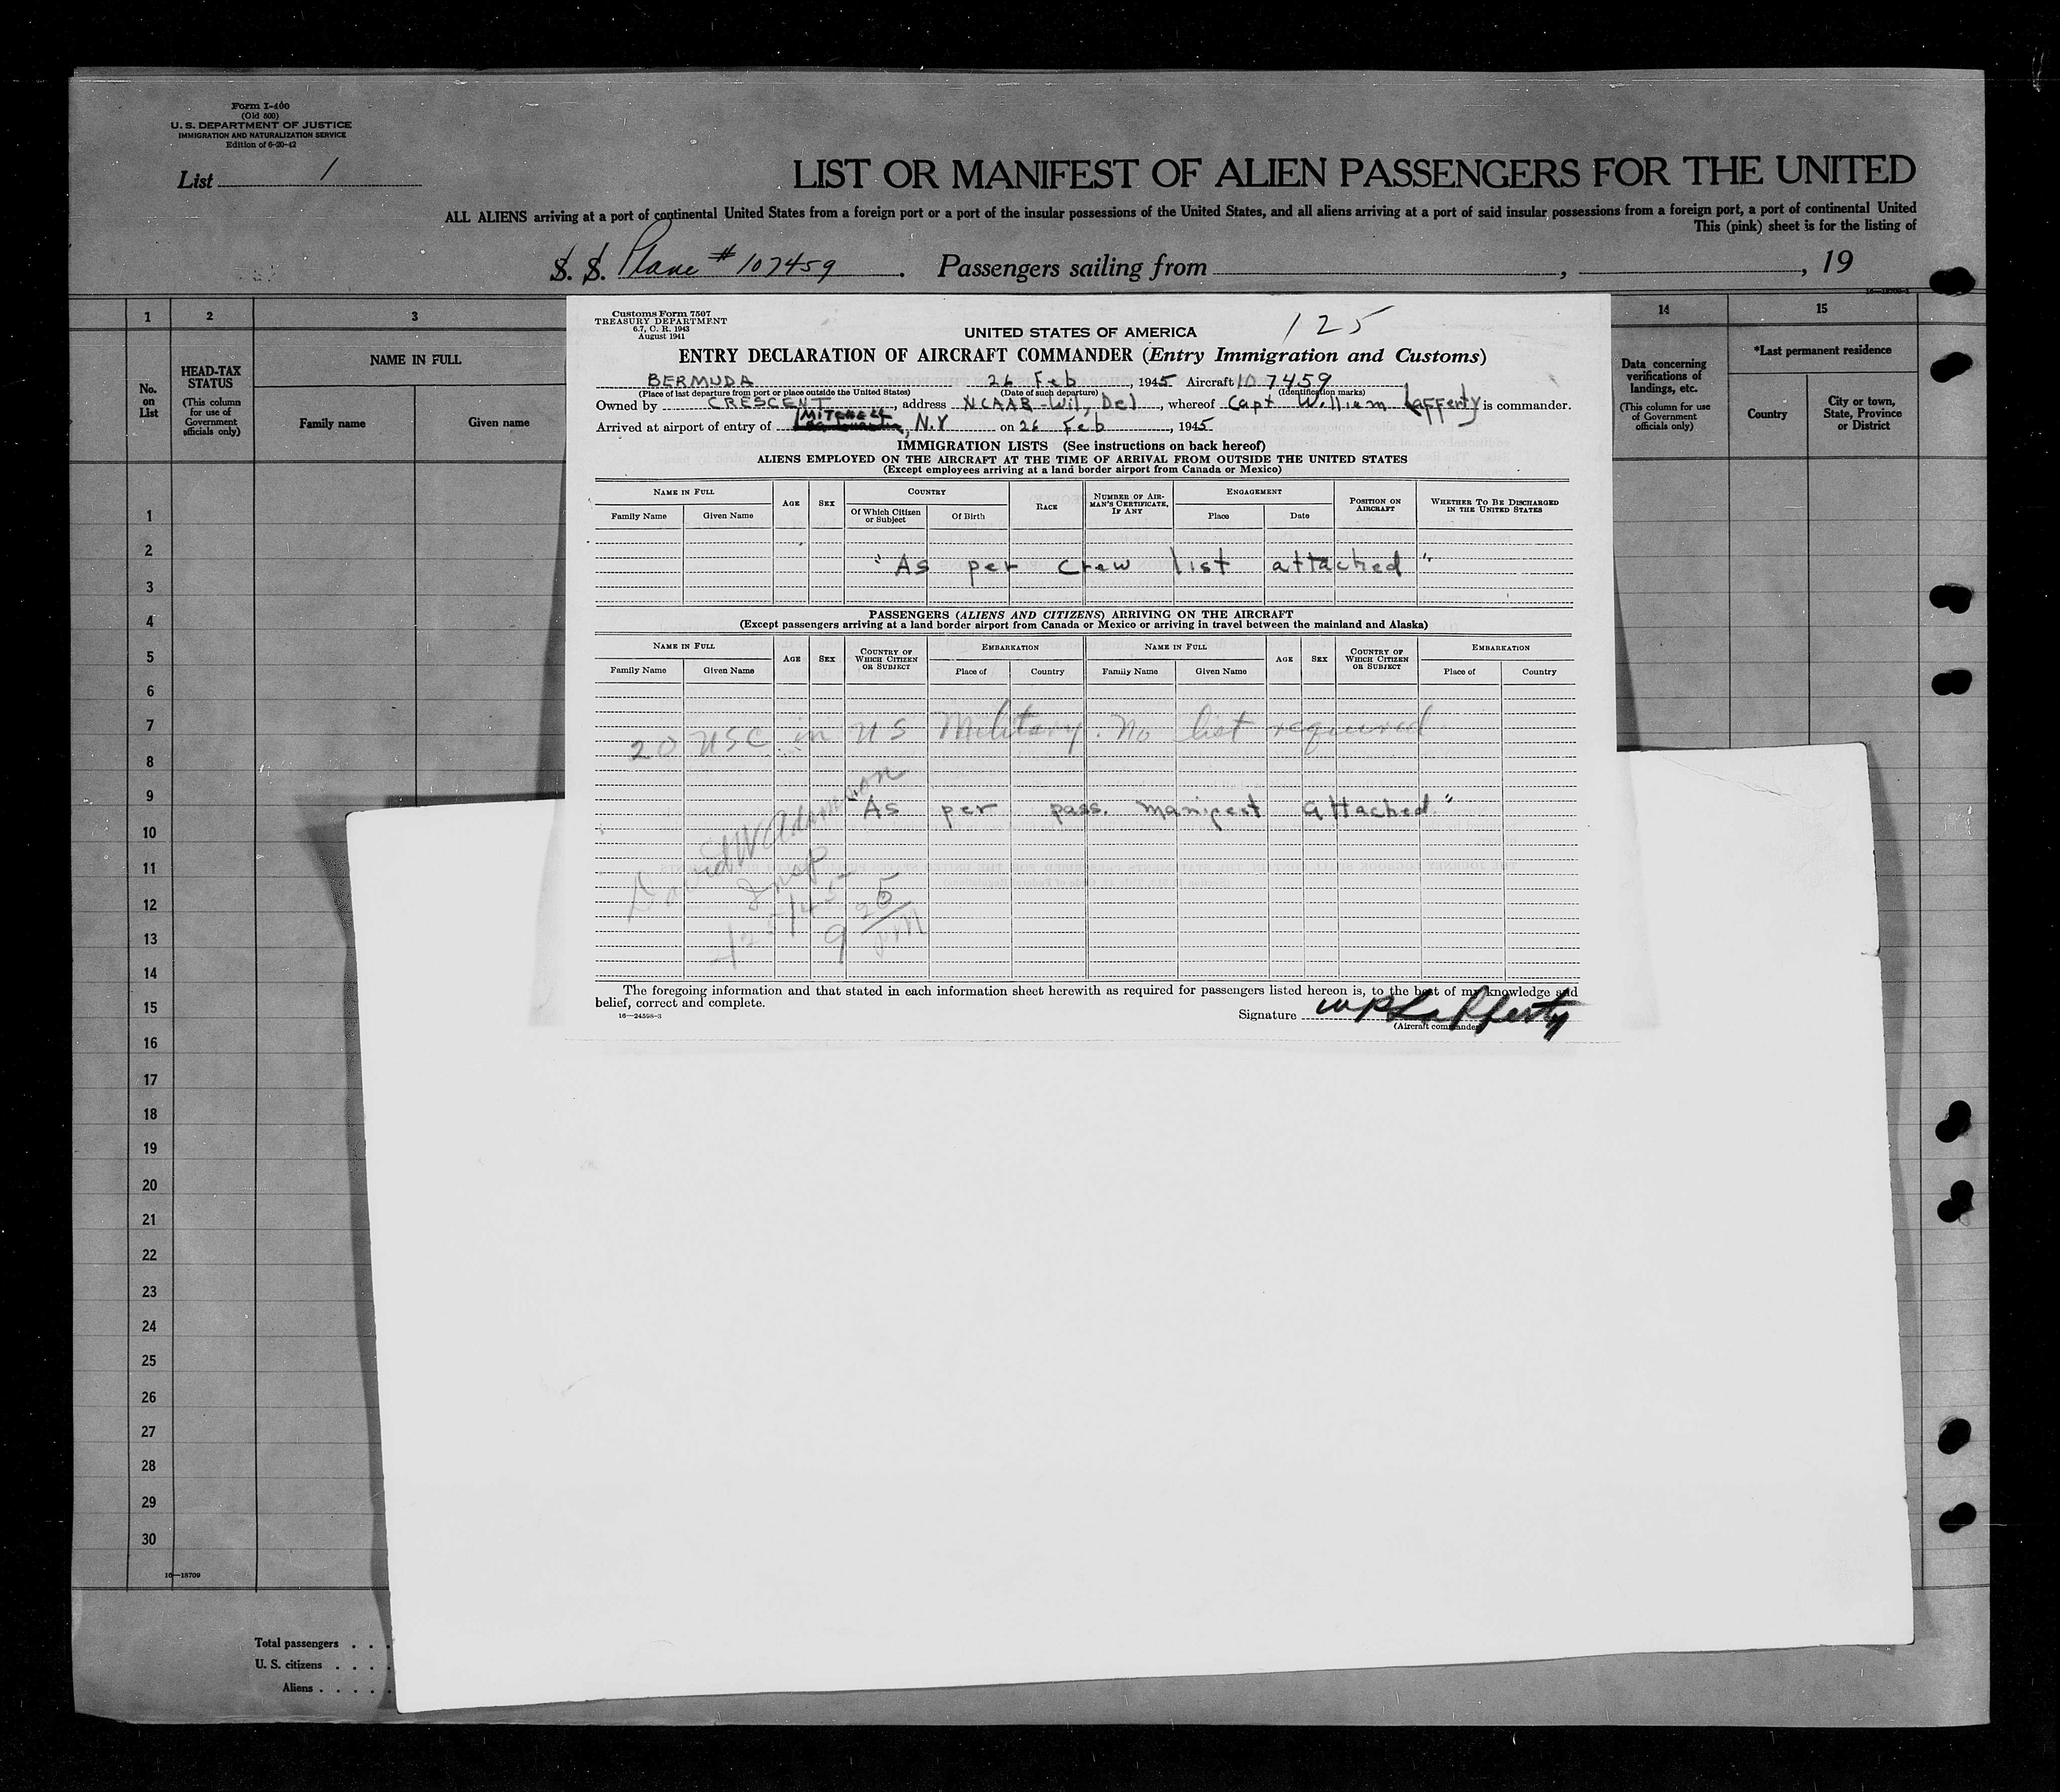 Form I-400
(Old 500)
U. S. DEPARTMENT OF JUSTICE
IMMIGRATION AND NATURALIZATION SERVICE
Edition of 6-20-42
List 1
LIST OR MANIFEST OF ALIEN PASSENGERS FOR THE UNITED
ALL ALIENS arriving at a port of continental United States from a foreign port or a port of the insular possessions of the United States, and all aliens arriving at a port of said insular possessions from a foreign port, a port of continental United
This (pink) sheet is for the listing of
S. S. Plane # 107459. Passengers sailing from , , 19
1 2 3 14 15
No. on List
HEAD-TAX STATUS
(This column for use of Government officials only)
NAME IN FULL
Family name Given name
Data concerning verifications of landings, etc.
(This column for use of Government officials only)
*Last permanent residence
Country City or town, State, Province or District
Customs Form 7507
TREASURY DEPARTMENT
6.7, C. R. 1943
August 1941
125
UNITED STATES OF AMERICA
ENTRY DECLARATION OF AIRCRAFT COMMANDER (Entry Immigration and Customs)
BERMUDA 26 Feb, 1945 Aircraft 107459
(Place of last departure from port or place outside the United States) (Date of such departure) (Identification marks)
Owned by CRESCENT, address NCAAB-Wil, Del, whereof Capt William Lafferty is commander.
MITCHELL
Arrived at airport of entry of , N.Y on 26 Feb, 1945
IMMIGRATION LISTS (See instructions on back hereof)
ALIENS EMPLOYED ON THE AIRCRAFT AT THE TIME OF ARRIVAL FROM OUTSIDE THE UNITED STATES
(Except employees arriving at a land border airport from Canada or Mexico)
NAME IN FULL AGE SEX COUNTRY RACE NUMBER OF AIRMAN'S CERTIFICATE, IF ANY ENGAGEMENT POSITION ON AIRCRAFT WHETHER TO BE DISCHARGED IN THE UNITED STATES
Family Name Given Name Of Which Citizen or Subject Of Birth Place Date
"As per crew list attached"
PASSENGERS (ALIENS AND CITIZENS) ARRIVING ON THE AIRCRAFT
(Except passengers arriving at a land border airport from Canada or Mexico or arriving in travel between the mainland and Alaska)
NAME IN FULL AGE SEX COUNTRY OF WHICH CITIZEN OR SUBJECT EMBARKATION NAME IN FULL AGE SEX COUNTRY OF WHICH CITIZEN OR SUBJECT EMBARKATION
Family Name Given Name Place of Country Family Name Given Name Place of Country
20 USC in US Military. No list required
"As per pass. manifest attached."
David W Adamson
Insp
9 25 PM
The foregoing information and that stated in each information sheet herewith as required for passengers listed hereon is, to the best of my knowledge and
belief, correct and complete.
16—24598-3
Signature WP Lafferty
(Aircraft commander)
1
2
3
4
5
6
7
8
9
10
11
12
13
14
15
16
17
18
19
20
21
22
23
24
25
26
27
28
29
30
16—18709
Total passengers . . .
U. S. citizens . . . .
Aliens . . . . .